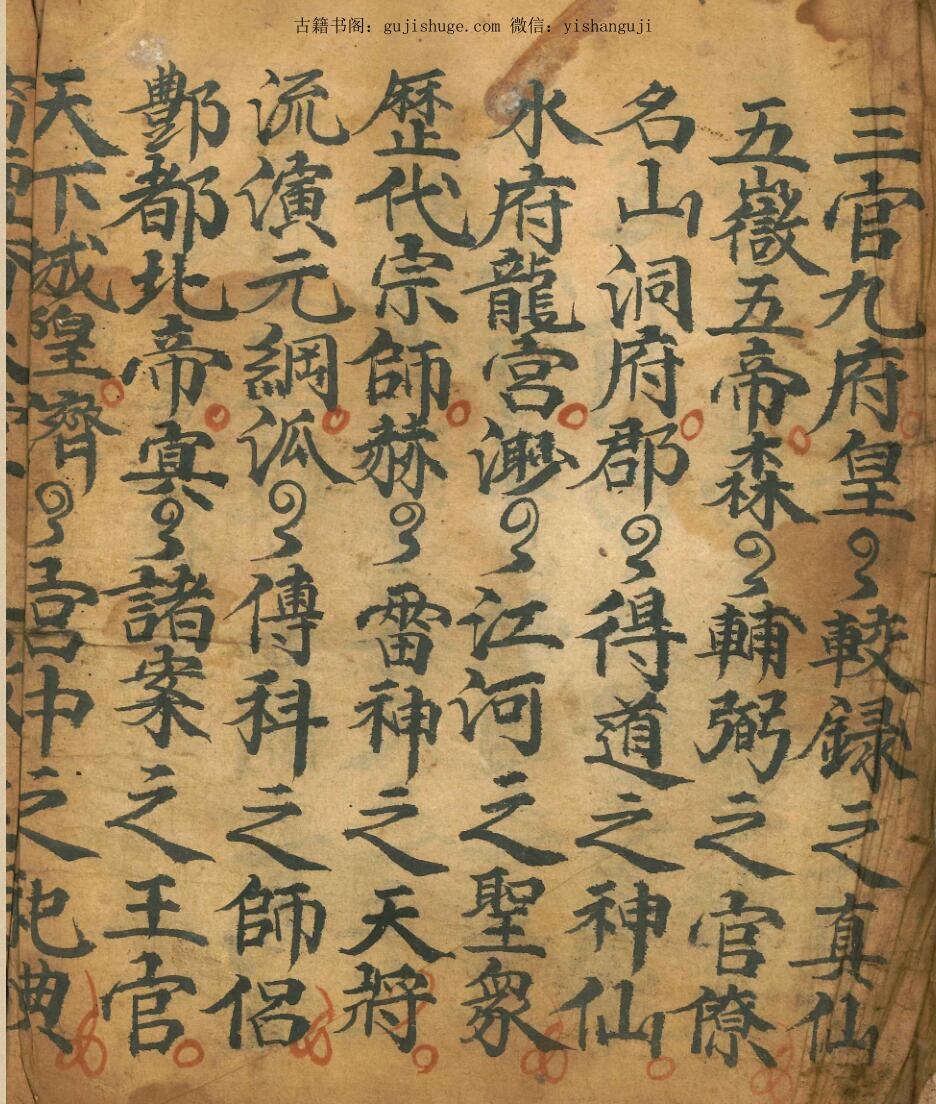 古籍书阁：gujishuge.com 微信：yishanguji
三官九府皇〻較録之真仙
五嶽五帝森〻輔弼之官僚
名山洞府郡〻得道之神仙
水府龍宮渺〻江河之聖衆
歷代宗師赫〻雷神之天將
流演元綱派〻傳科之師侶
酆都北帝寘〻諸案之王官
天下城隍齊〻宫中之祀典